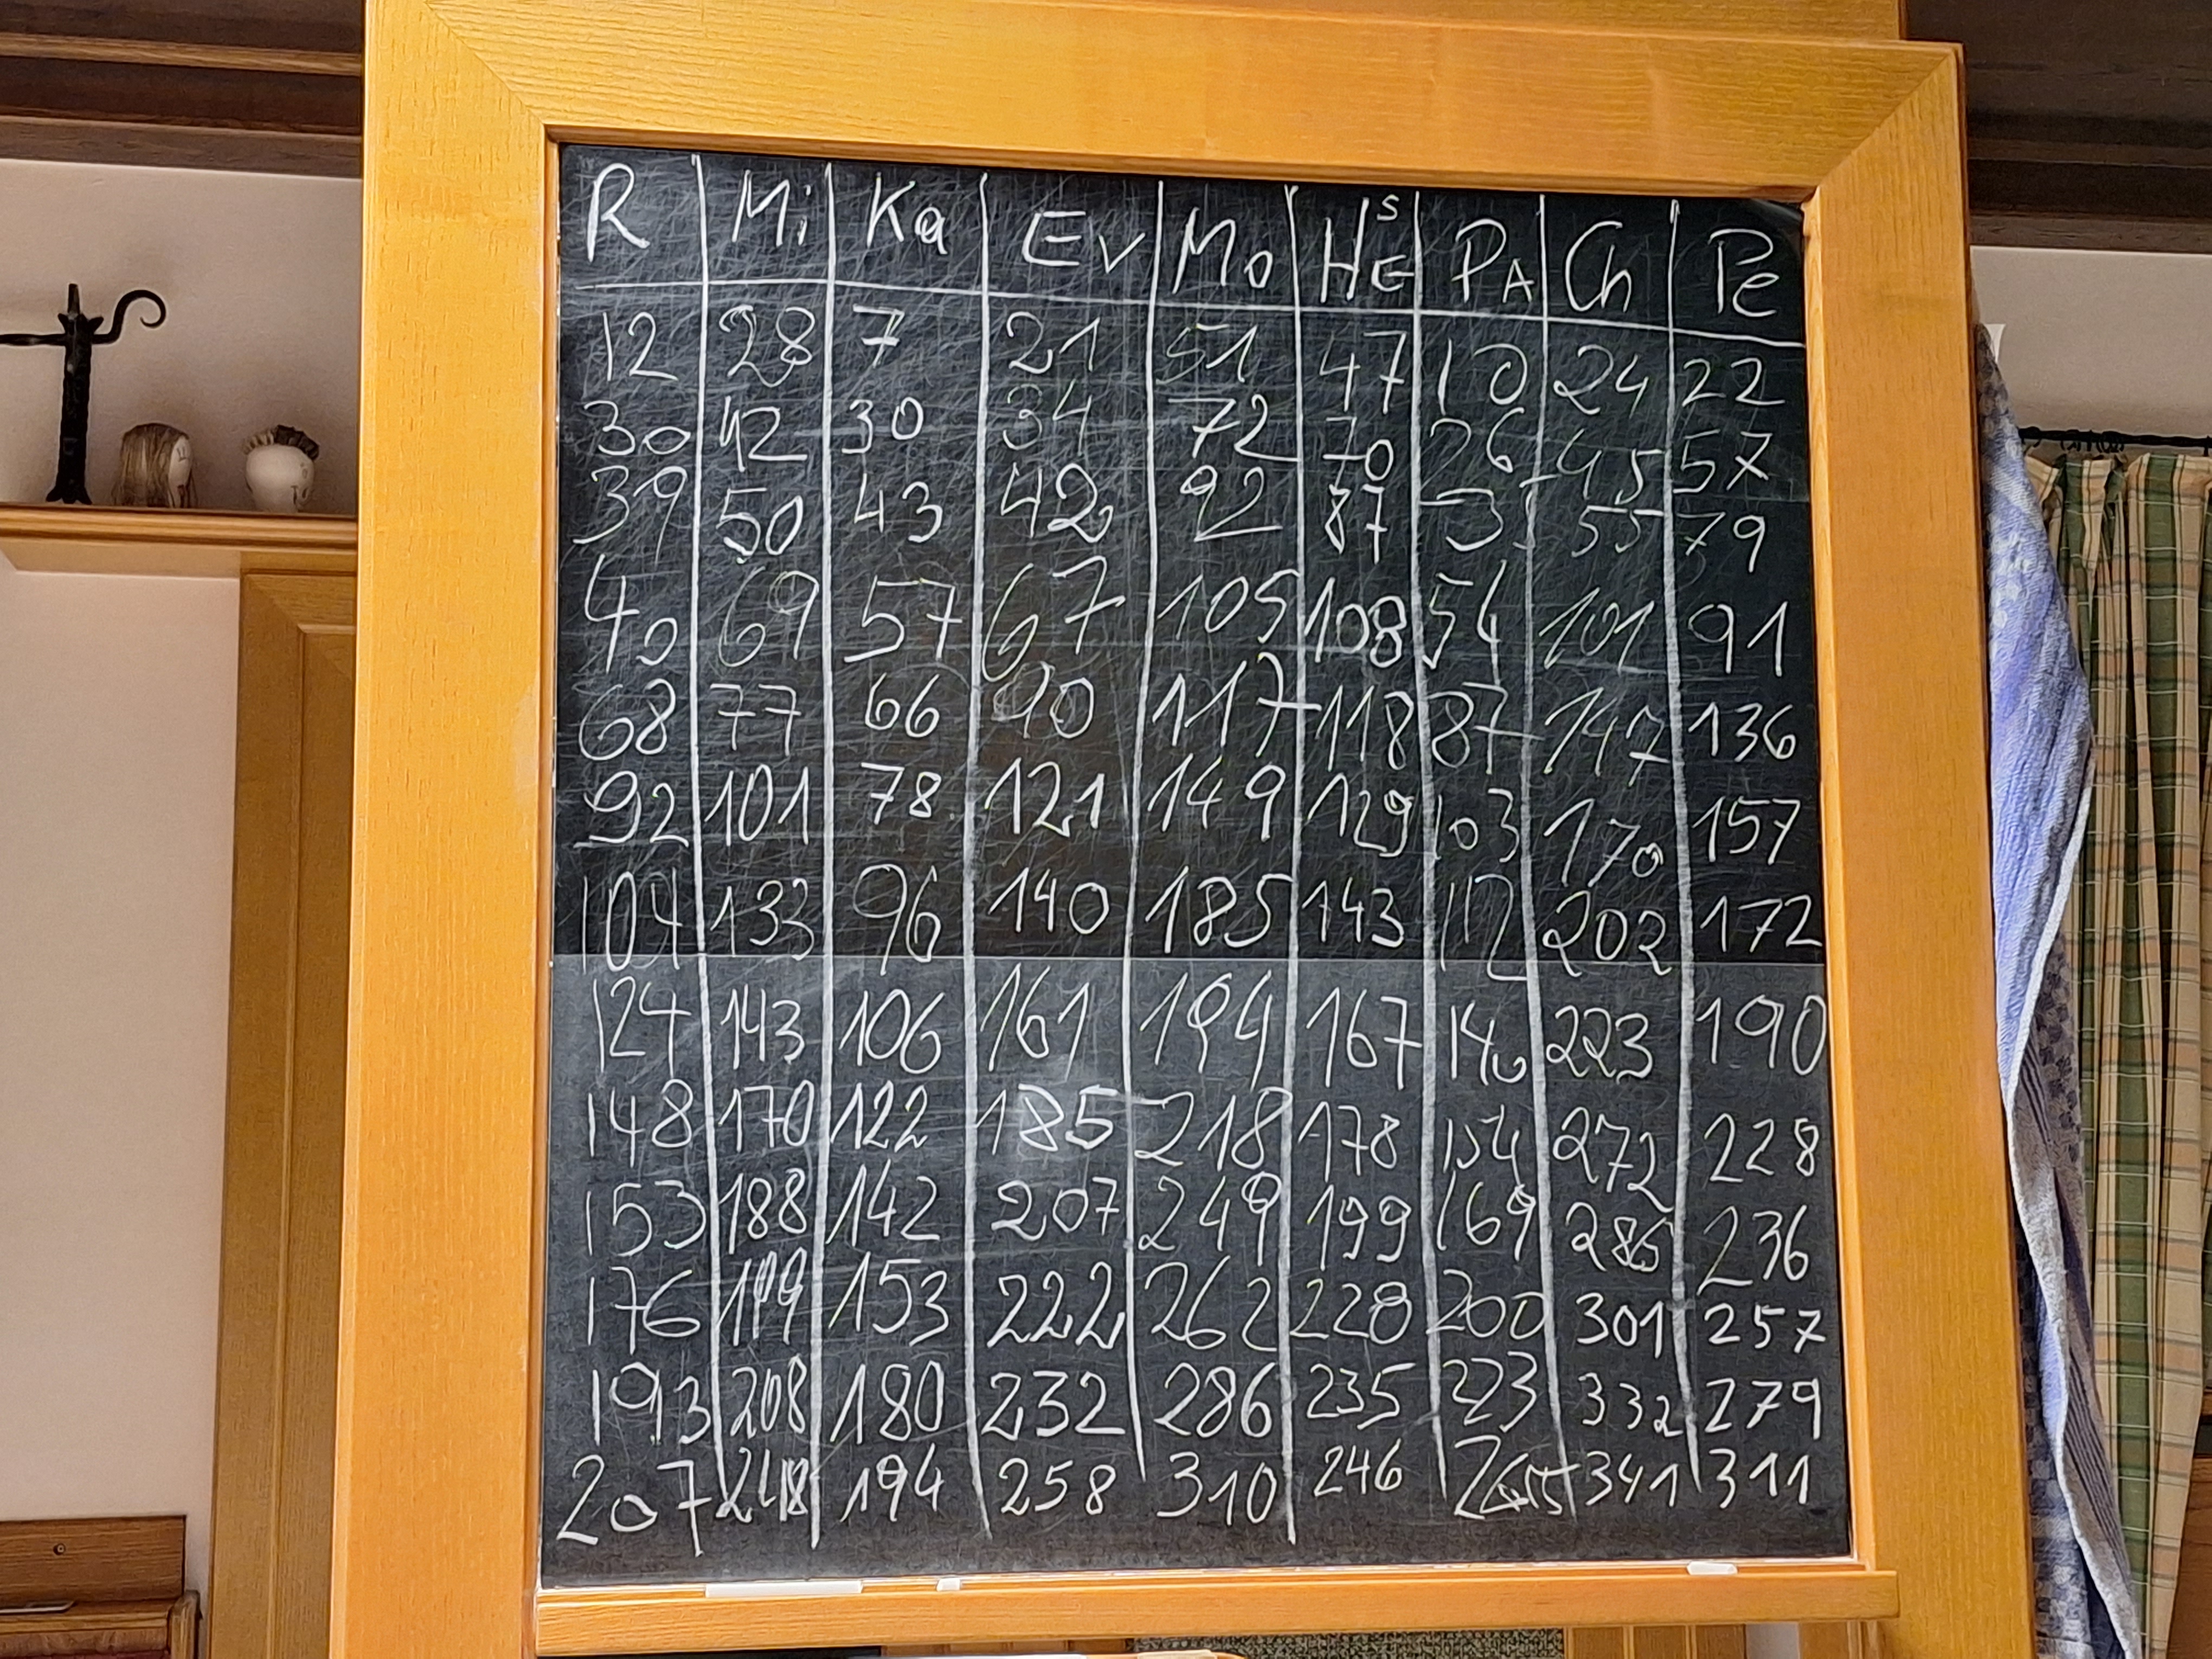 R Mi Ka Ev Mo HES PA Ch Pe
12 28 7 21 51 47 10 24 22
30 42 30 34 72 70 26 45 57
39 50 43 42 92 87 55 79
40 69 57 67 105 108 54 101 91
68 77 66 90 117 118 87 147 136
92 101 78 121 149 129 103 170 157
104 133 96 140 185 143 112 202 172
124 143 106 161 194 167 140 223 190
148 170 122 185 218 178 154 272 228
153 188 142 207 249 199 169 286 236
176 199 153 222 262 228 200 301 257
193 208 180 232 286 235 223 332 279
207 218 194 258 310 246 341 311